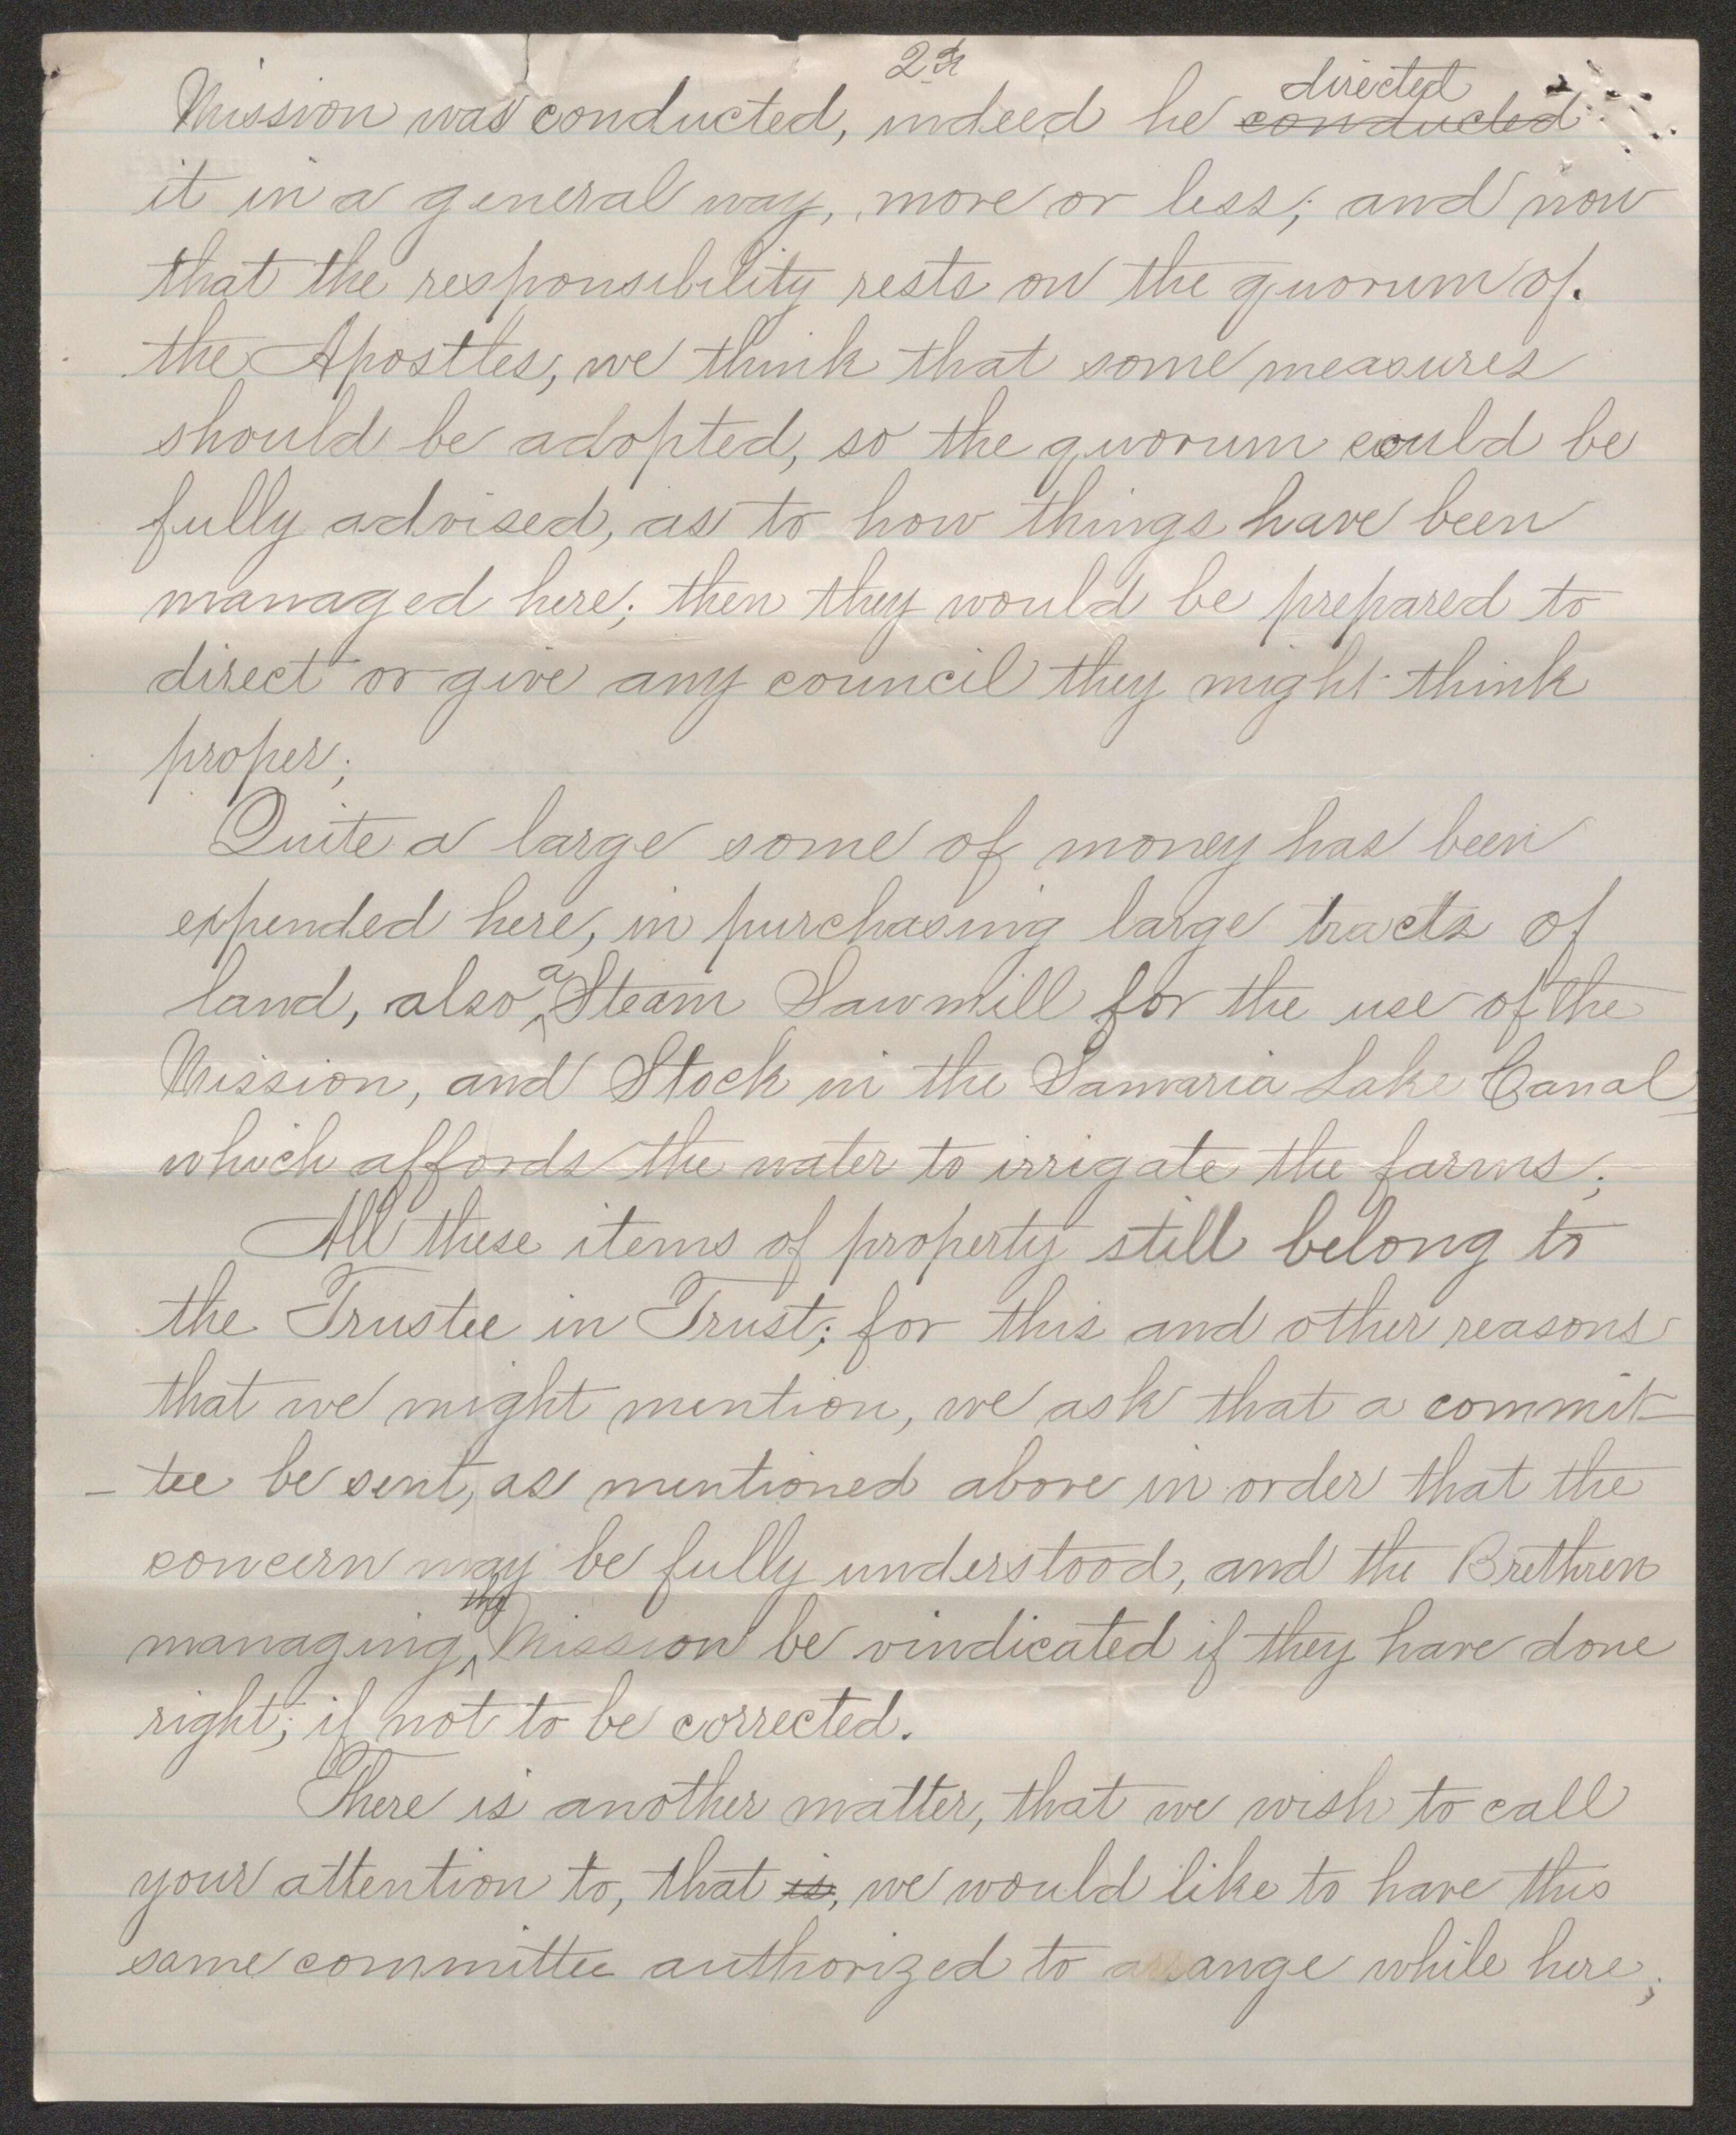 2d
Mission was conducted, indeed he directed conducted
it in a general way, more or less; and now
that the responsibility rests on the quorum of.
the Apostles, we think that some measures
should be adopted, so the quorum could be
fully advised, as to how things have been
managed here; then they would be prepared to
direct or give any council they might think
proper;
Quite a large some of money has been
expended here, in purchasing large tracts of
land, also a Steam Sawmill for the use of the
Mission, and Stock in the Samaria Lake Canal,
which affords the water to irrigate the farms;
All these items of property still belong to
the Trustee in Trust; for this and other reasons
that we might mention, we ask that a commit-
-tee be sent, as mentioned above in order that the
concern may be fully understood, and the Brethren
managing the Mission be vindicated if they have done
right; if not to be corrected.
There is another matter, that we wish to call
your attention to, that is, we would like to have this
same committee authorized to arrange while here;